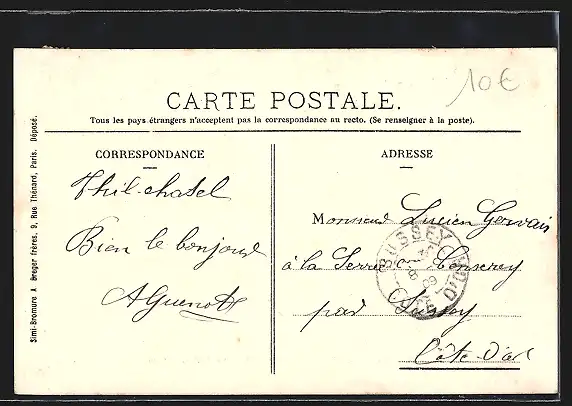 10€
CARTE POSTALE.
Tous les pays étrangers n'acceptent pas la correspondance au recto. (Se renseigner à la poste).
CORRESPONDANCE
Thil-chatel
Bien le bonjour
A Guenot
ADRESSE
Monsieur Lucien Gervais
à la Serrée
par Lussey
Côte-d'or
BUSSEY
CÔTE-D'OR
09
Simili-Bromure A. Breger frères, 9, Rue Thénard, Paris. Déposé.